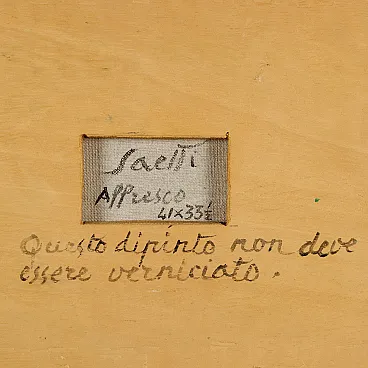 Saetti
Affresco
41×33½
Questo dipinto non deve
essere verniciato.